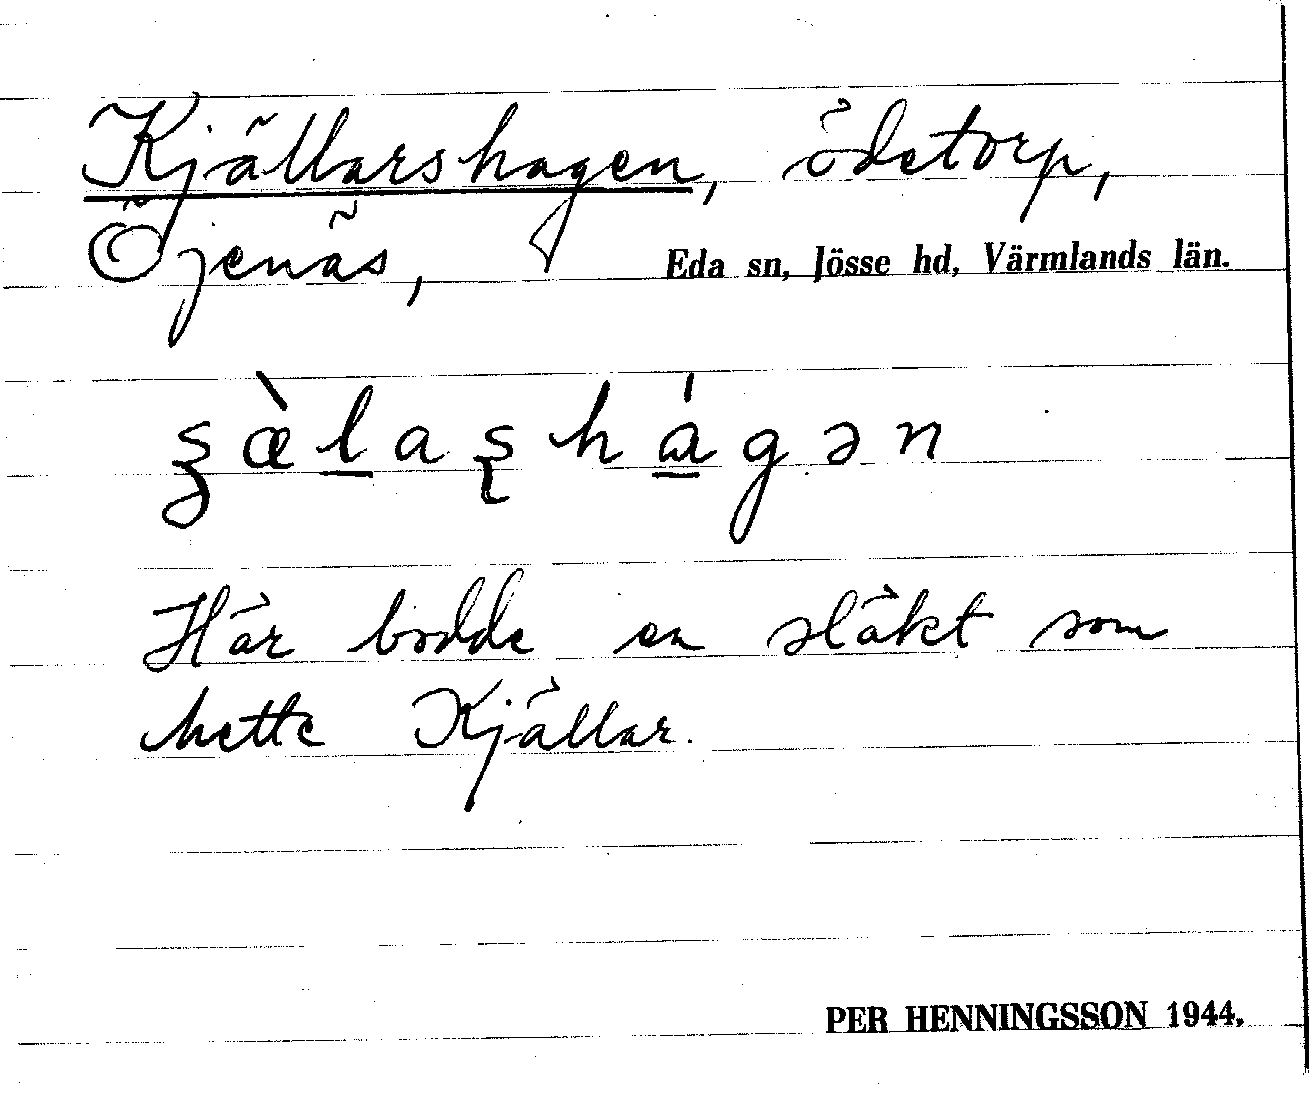 Kjällarshagen, ödetorp,
Öjenäs, Eda sn, Jösse hd, Värmlands län.
ʂæ̀l̲aʂhá̲gən
Här bodde en släkt som
hette Kjällar.
PER HENNINGSSON 1944.